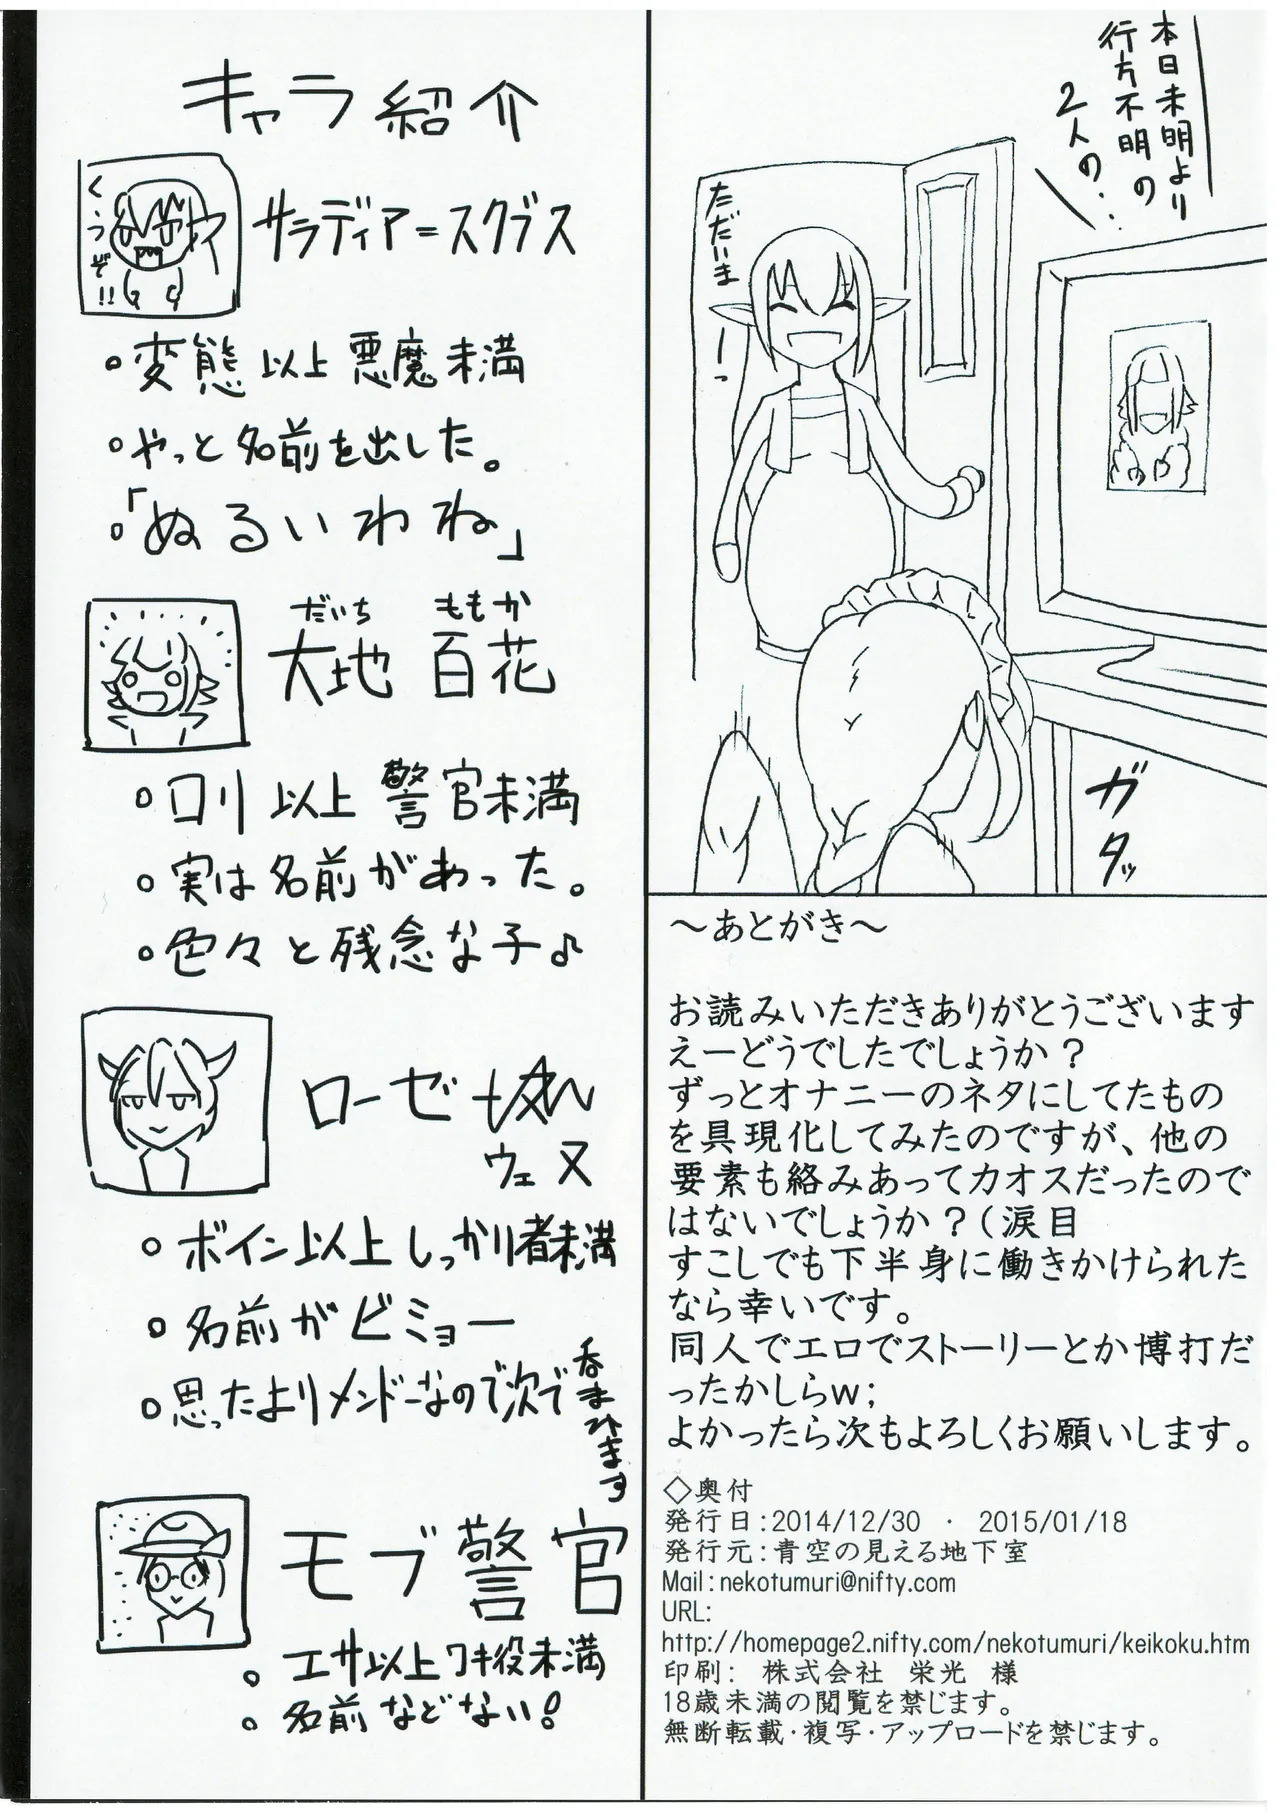 キャラ紹介
くうぞ!!
サラディア=スクブス
変態以上悪魔未満
やっと名前を出した。
「ぬるいわね」
だいち ももか
大地 百花
ロリ以上警官未満
実は名前があった。
色々と残念な子♪
ローゼ
ウェヌ
ボイン以上しっかり者未満
名前がビミョー
思ったよりメンドーなので次で
呑まれます
モブ警官
エサ以上ワキ役未満
名前などない!
本日未明より
行方不明の
2人の‥
ただいまーっ
ガタッ
～あとがき～
お読みいただきありがとうございます
えーどうでしたでしょうか？
ずっとオナニーのネタにしてたもの
を具現化してみたのですが、他の
要素も絡みあってカオスだったので
はないでしょうか？(涙目
すこしでも下半身に働きかけられた
なら幸いです。
同人でエロでストーリーとか博打だ
ったかしらw;
よかったら次もよろしくお願いします。
◇奥付
発行日:2014/12/30 ・ 2015/01/18
発行元:青空の見える地下室
Mail:nekotumuri@nifty.com
URL:
http://homepage2.nifty.com/nekotumuri/keikoku.htm
印刷: 株式会社 栄光 様
18歳未満の閲覧を禁じます。
無断転載・複写・アップロードを禁じます。